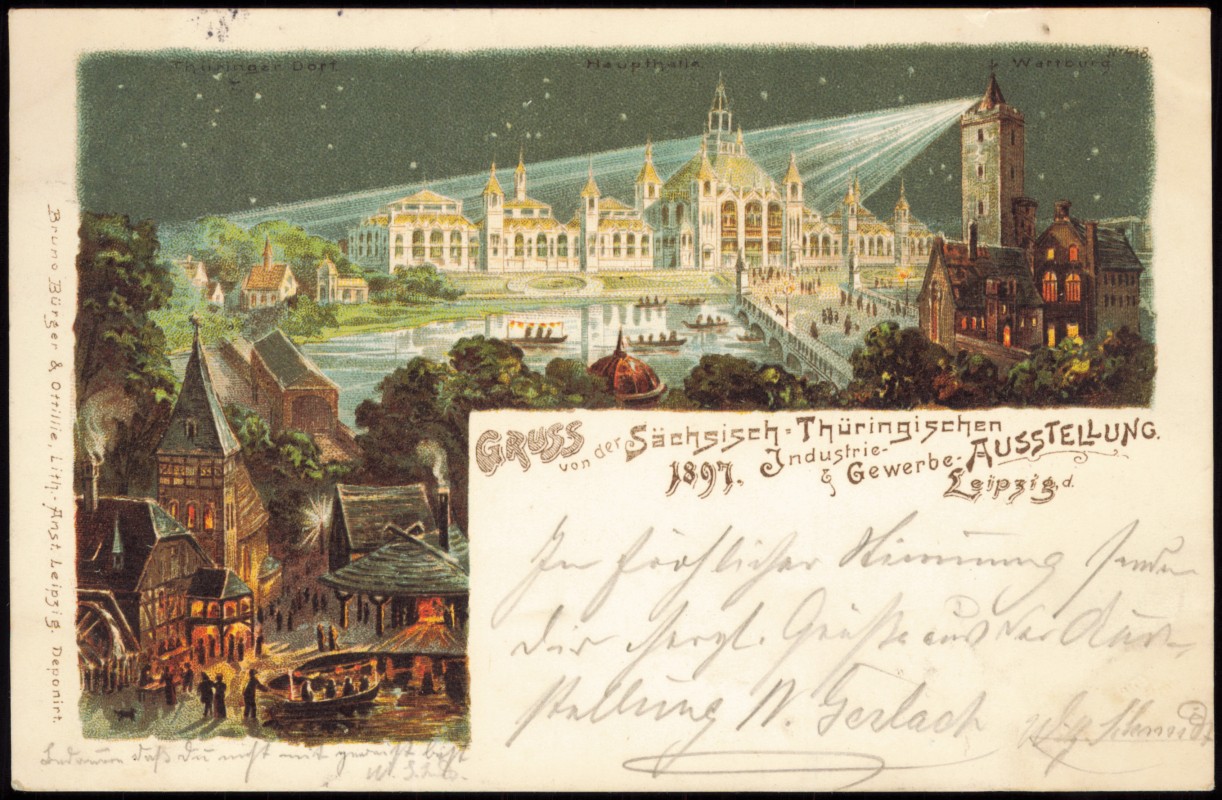 Thüringer Dorf.
Haupthalle.
Wartburg.
Bruno Bürger & Ottillie, Lith.-Anst. Leipzig. Deponirt.
GRUSS von der Sächsisch-Thüringischen
1897. Industrie- & Gewerbe- AUSSTELLUNG.
Leipzig, d.
In fröhlicher Stimmung senden
Dir herzl. Grüße aus der Aus-
stellung W. Gerlach
Bedauern daß Du nicht mit gereist bist